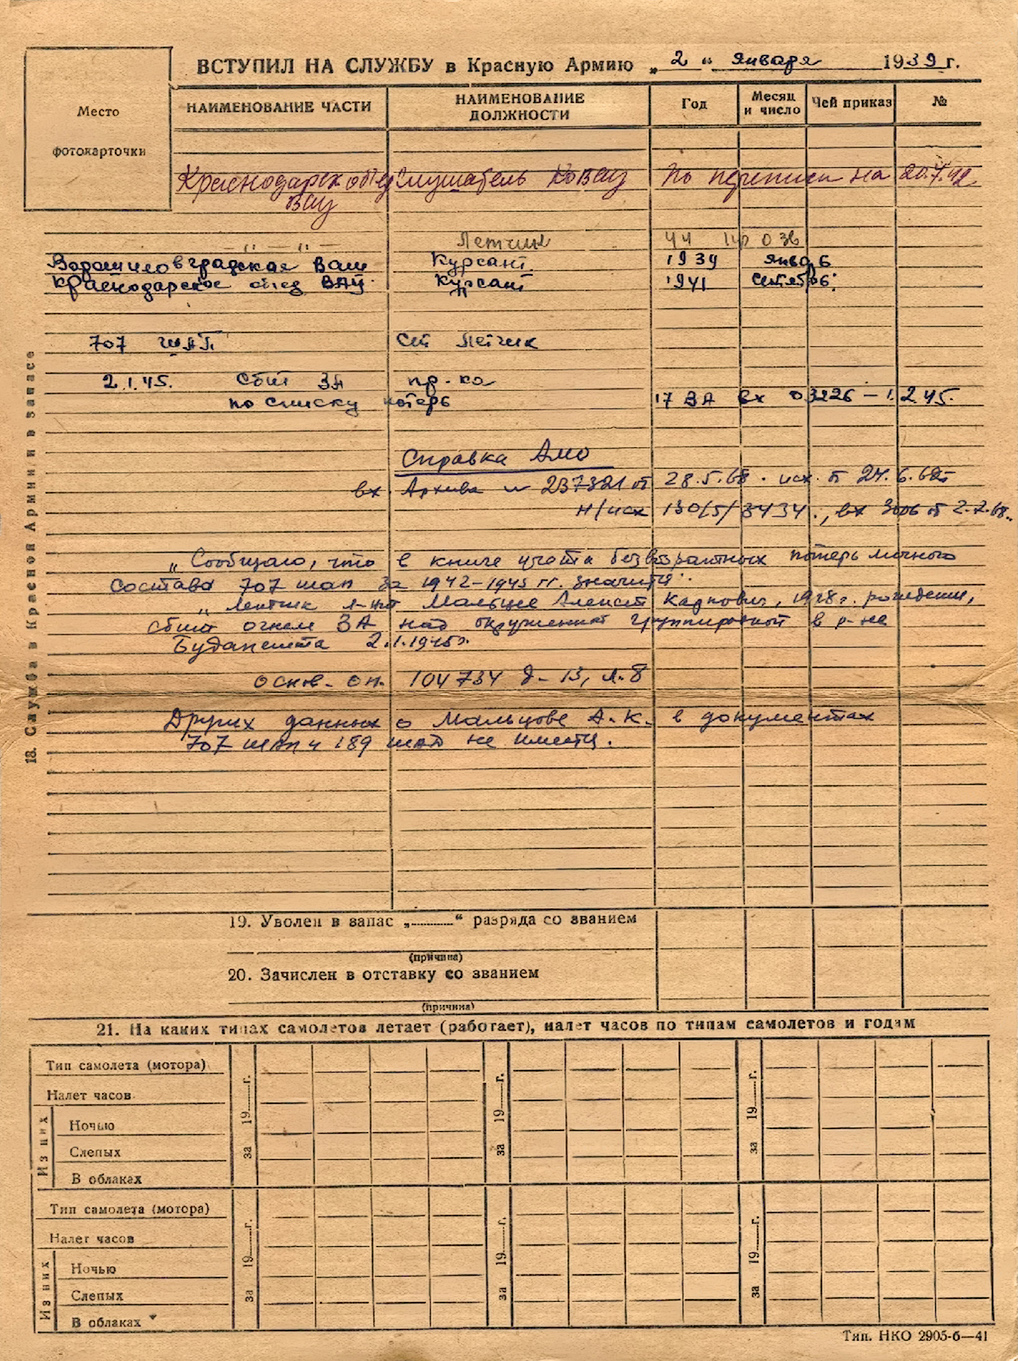 ВСТУПИЛ НА СЛУЖБУ в Красную Армию „2“ января 1939 г.
Место
фотокарточки
НАИМЕНОВАНИЕ ЧАСТИ
НАИМЕНОВАНИЕ
ДОЛЖНОСТИ
Год
Месяц
и число
Чей приказ
№
Краснодарск объед слушатель КОВАУ По переписи на 20.7.42
ВАУ
—"— —"— Летчик 44
Ворошиловградская ВАШ Курсант 1939 январь
Краснодарское объед ВАУ. Курсант 1941 сентябрь
707 ШАП Ст Летчик
2.1.45. Сбит ЗА пр-ка
по списку потерь 17 ВА вх 03226 – 1.2.45.
Справка АМО
вх. Архива № 237321 от 28.5.68. исх. от 24.6.68г
Н/исх 130/5/3434., вх 3006 от 2.7.68г.
„Сообщаю, что в книге учета безвозвратных потерь личного
состава 707 шап за 1942–1945 гг. значится:
„Летчик л-нт Мальцев Алексей Карпович, 1918г. рождения,
сбит огнем ЗА над окруженной группировкой в р-не
Будапешта 2.1.1945г.
основ. оп. 104734 д-13, л.8
Других данных о Мальцеве А.К. в документах
707 шап и 189 шад не имеется.
18. Служба в Красной Армии и в запасе
19. Уволен в запас „..........“ разряда со званием
(причина)
20. Зачислен в отставку со званием
(причина)
21. На каких типах самолетов летает (работает), налет часов по типам самолетов и годам
Тип самолета (мотора)
Налет часов
Из них
Ночью
Слепых
В облаках
за 19___г.
за 19___г.
за 19___г.
Тип самолета (мотора)
Налет часов
Из них
Ночью
Слепых
В облаках
за 19___г.
за 19___г.
за 19___г.
Тип. НКО 2905-б—41